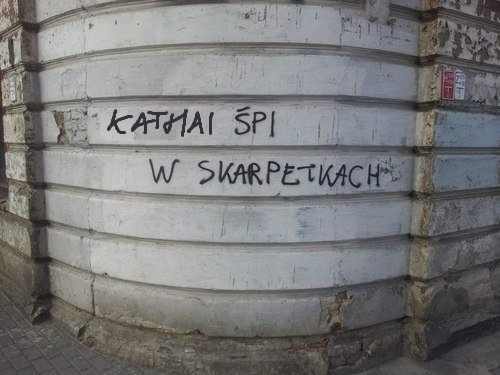 KATHAI ŚPI
W SKARPETKACH